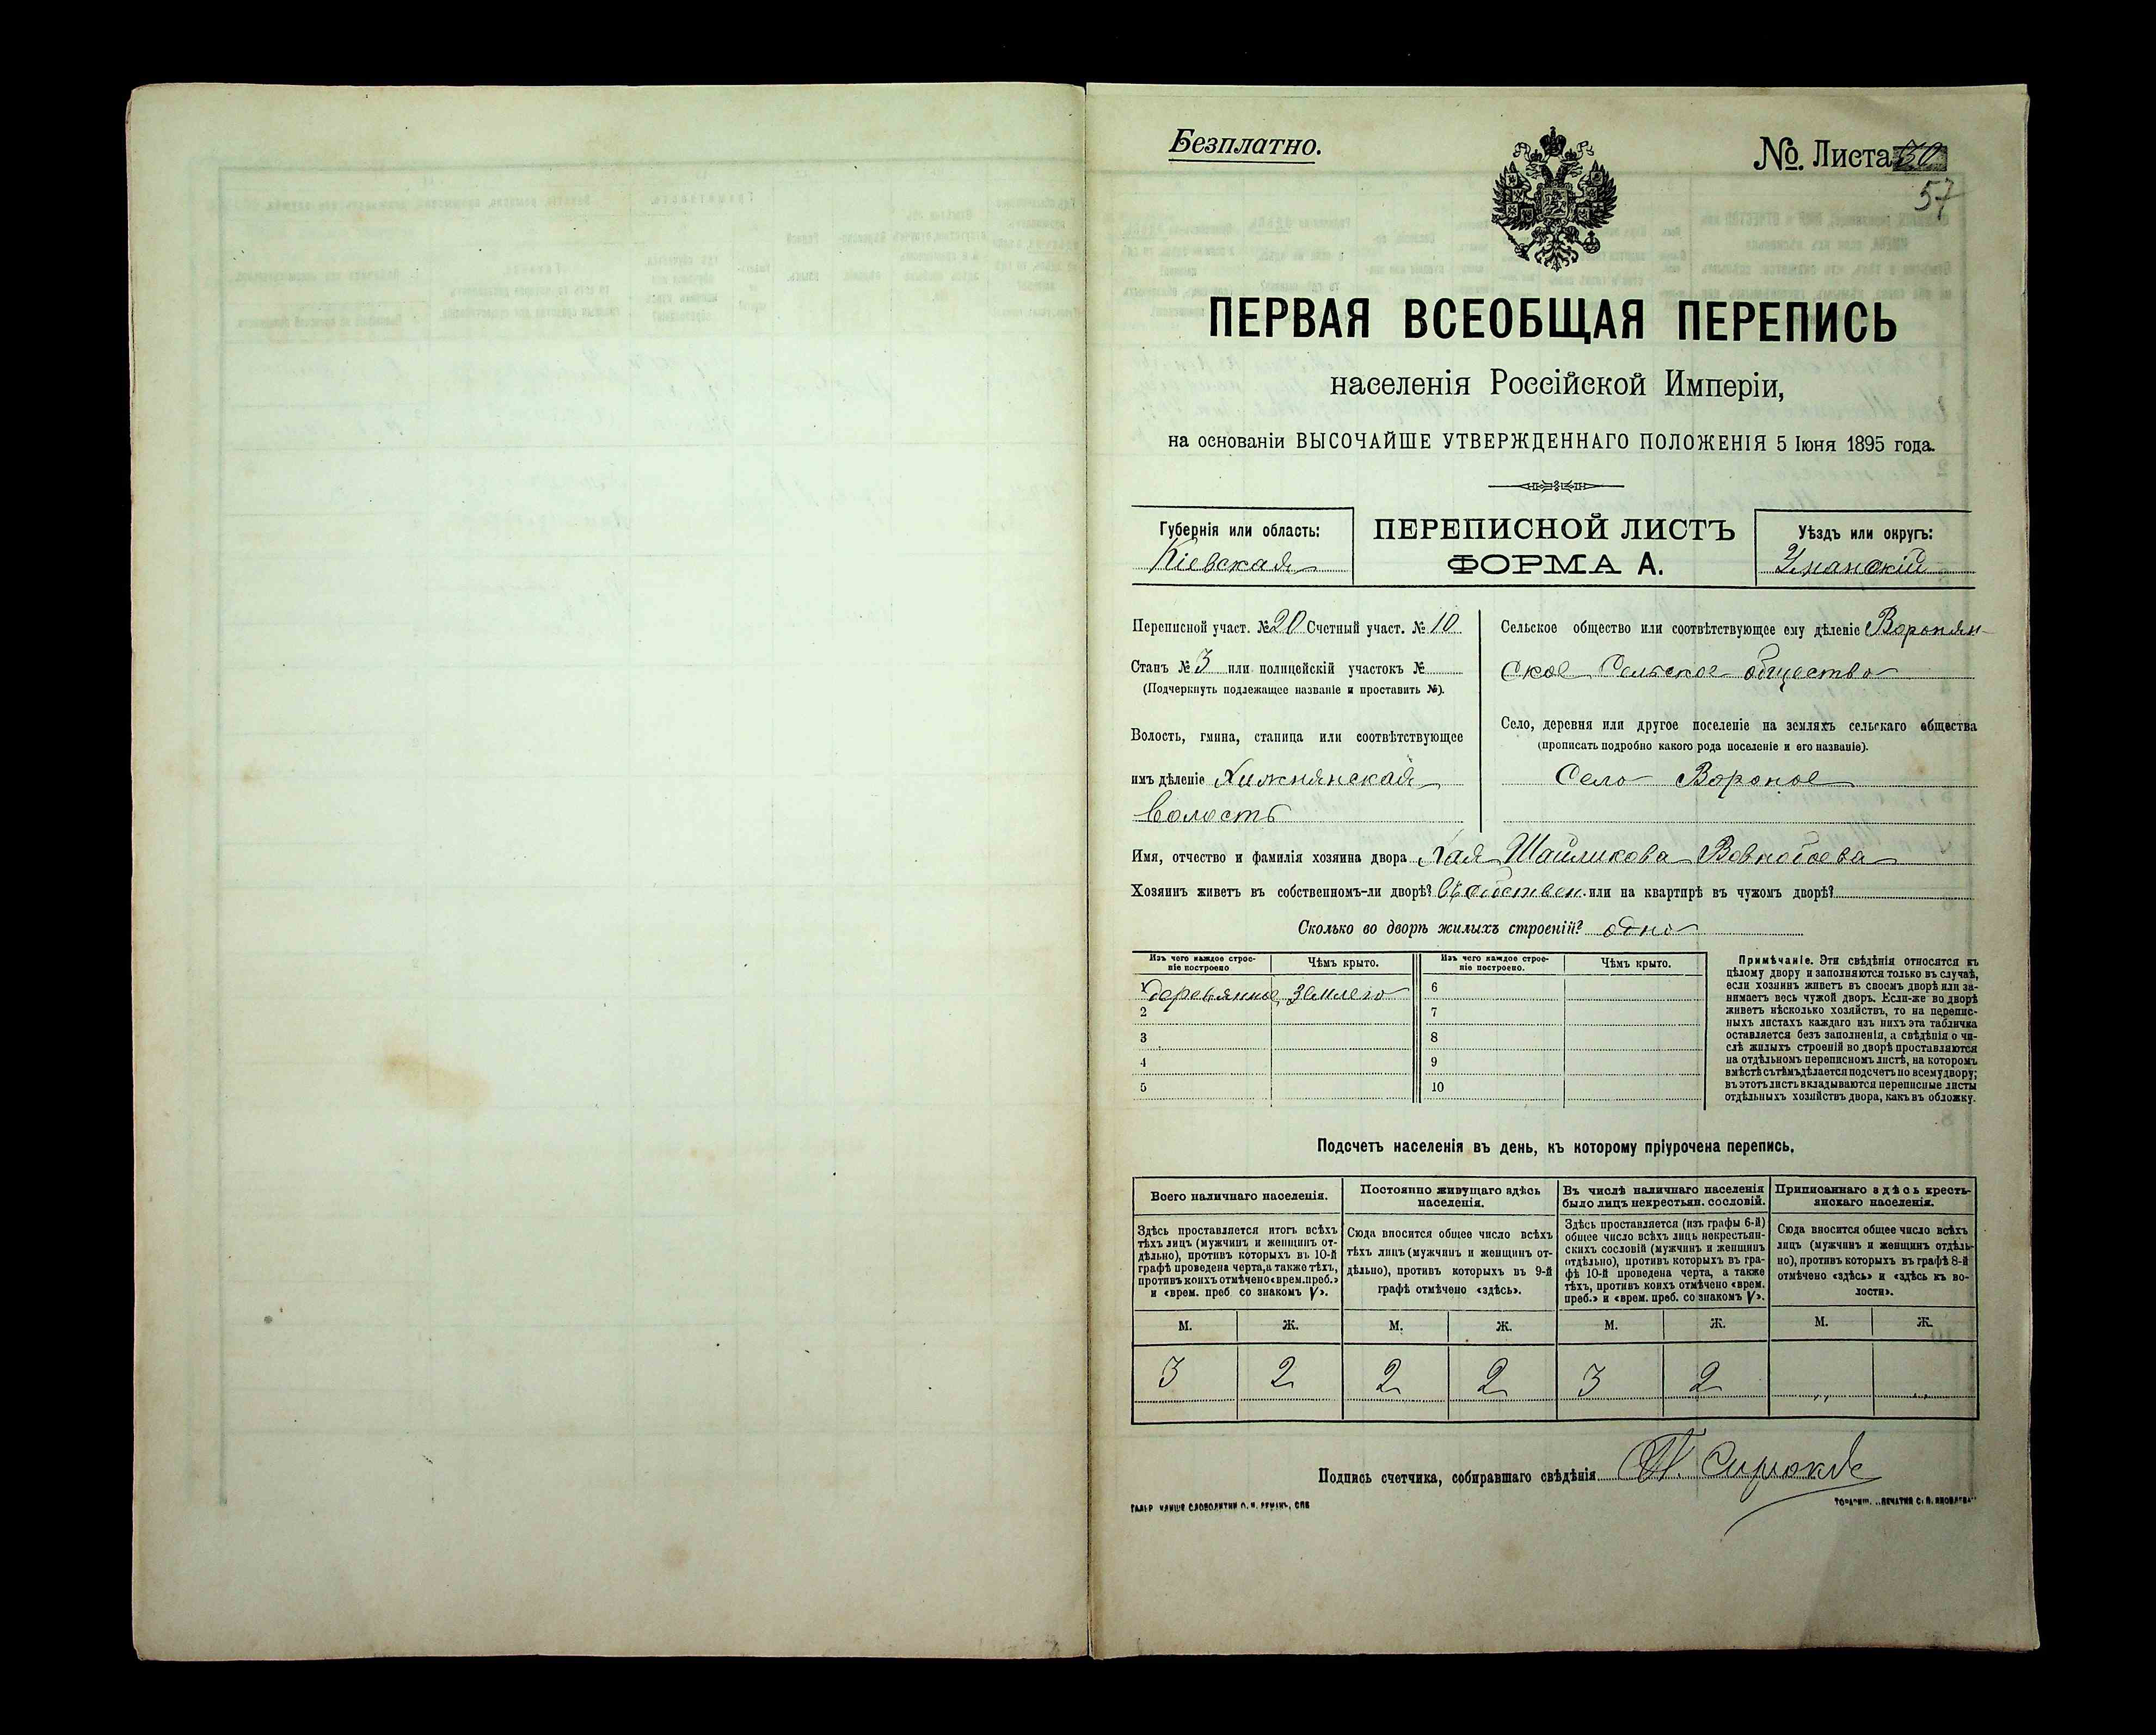 Безплатно.
№. Листа 50
57
ПЕРВАЯ ВСЕОБЩАЯ ПЕРЕПИСЬ
населенія Россійской Имперіи,
на основаніи ВЫСОЧАЙШЕ УТВЕРЖДЕННАГО ПОЛОЖЕНІЯ 5 Іюня 1895 года.
Губернія или область:
Кіевская
ПЕРЕПИСНОЙ ЛИСТЪ
ФОРМА А.
Уѣздъ или округъ:
Уманскій
Переписной участ. № 20 Счетный участ. № 10
Станъ № 3 или полицейскій участокъ №
(Подчеркнуть подлежащее названіе и проставить №).
Волость, гмина, станица или соотвѣтствующее
имъ дѣленіе Хижнянская
волость
Сельское общество или соотвѣтствующее ему дѣленіе Воронян-
ское Сельское общество
Село, деревня или другое поселеніе на земляхъ сельскаго общества
(прописать подробно какого рода поселеніе и его названіе).
Село Вороное
Имя, отчество и фамилія хозяина двора Хая Шаиликова
Хозяинъ живетъ въ собственномъ-ли дворѣ? въ собствен. или на квартирѣ въ чужомъ дворѣ?
Сколько во дворѣ жилыхъ строеній? одно
Изъ чего каждое строе-
ніе построено
Чѣмъ крыто.
Изъ чего каждое строе-
ніе построено.
Чѣмъ крыто.
1 деревянное землею
2
3
4
5
6
7
8
9
10
Примѣчаніе. Эти свѣдѣнія относятся къ
цѣлому двору и заполняются только въ случаѣ,
если хозяинъ живетъ въ своемъ дворѣ или за-
нимаетъ весь чужой дворъ. Если-же во дворѣ
живетъ нѣсколько хозяйствъ, то на перепис-
ныхъ листахъ каждаго изъ нихъ эта табличка
оставляется безъ заполненія, а свѣдѣнія о чи-
слѣ жилыхъ строеній во дворѣ проставляются
на отдѣльномъ переписномъ листѣ, на которомъ
вмѣстѣ съ тѣмъ дѣлается подсчетъ по всему двору;
въ этотъ листъ вкладываются переписные листы
отдѣльныхъ хозяйствъ двора, какъ въ обложку.
Подсчетъ населенія въ день, къ которому пріурочена перепись.
Всего наличнаго населенія.
Здѣсь проставляется итогъ всѣхъ
тѣхъ лицъ (мужчинъ и женщинъ от-
дѣльно), противъ которыхъ въ 10-й
графѣ проведена черта, а также тѣхъ,
противъ коихъ отмѣчено «врем. преб.»
и «врем. преб. со знакомъ V».
Постоянно живущаго здѣсь
населенія.
Сюда вносится общее число всѣхъ
тѣхъ лицъ (мужчинъ и женщинъ от-
дѣльно), противъ которыхъ въ 9-й
графѣ отмѣчено «здѣсь».
Въ числѣ наличнаго населенія
было лицъ некрестьян. сословій.
Здѣсь проставляется (изъ графы 6-й)
общее число всѣхъ лицъ некрестьян-
скихъ сословій (мужчинъ и женщинъ
отдѣльно), противъ которыхъ въ гра-
фѣ 10-й проведена черта, а также
тѣхъ, противъ коихъ отмѣчено «врем.
преб.» и «врем. преб. со знакомъ V».
Приписаннаго здѣсь кресть-
янскаго населенія.
Сюда вносится общее число всѣхъ
лицъ (мужчинъ и женщинъ отдѣль-
но), противъ которыхъ въ графѣ 8-й
отмѣчено «здѣсь» и «здѣсь къ во-
лости».
М. Ж. М. Ж. М. Ж. М. Ж.
3 2 2 2 3 2 „ „
Подпись счетчика, собиравшаго свѣдѣнія